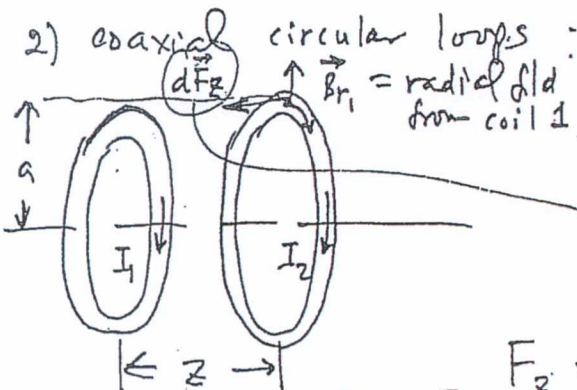 2) coaxial circular loops :
dF⃗z B⃗r₁ = radial fld
from coil 1
a
I₁ I₂
z
Fz